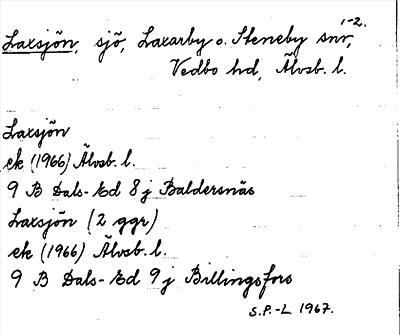 1-2.
Laxsjön, sjö, Laxarby o. Steneby snr,
Vedbo hd, Älvsb. l.
Laxsjön
ek (1966) Älvsb. l.
9 B Dals-Ed 8 j Baldersnäs
Laxsjön (2 ggr)
ek (1966) Älvsb. l.
9 B Dals-Ed 9 j Billingsfors
S.P.-L 1967.